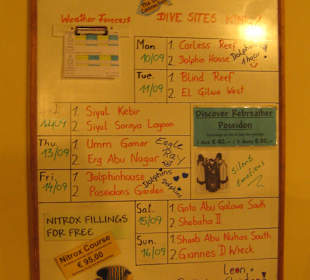 Weather Forecast
DIVE SITES
Mon 10/09
1. Careless Reef
2. Dolphin House
Dolphins
1 hour
Tue 11/09
1. Blind Reef
2. El Gilwa West
1. Siyal Kebir
2. Siyal Soraya Lagoon
Discover Rebreather
Poseidon
Thu 13/09
1. Umm Gamar
2. Erg Abu Nugar
Eagle
Ray
Silent
Fri 14/09
1. Dolphinhouse
2. Poseidons Garden
Dolphins
NITROX FILLINGS
FOR FREE
Sat 15/09
1. Gota Abu Galawa South
2. Shabaha II
Nitrox Course
€ 95,00
Sun 16/09
1. Shaab Abu Nuhas South
2. Giannes D Wreck
Leon